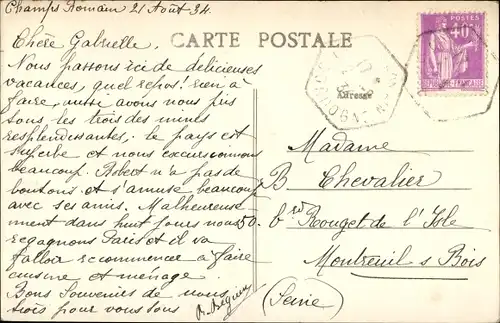 Champs Romain 21 Août 34.
Chère Gabrielle.
Nous passons ici de délicieuses
vacances, quel repos! rien à
faire, aussi avons nous pris
tous les trois des mines
resplendissantes. le pays est
superbe et nous excursionnons
beaucoup. Robert n'a pas de
boutons et s'amuse beaucoup
avec ses amis. Malheureuse-
ment dans huit jours nous
regagnons Paris et il va
falloir recommencer à faire
cuisine et ménage.
Bons Souvenirs de nous
trois pour vous tous
CARTE POSTALE
Adresse
POSTES
40
RÉPUBLIQUE FRANÇAISE
Madame
B Chevalier
50. bd Rouget de l'Isle
Montreuil s Bois
(Seine)